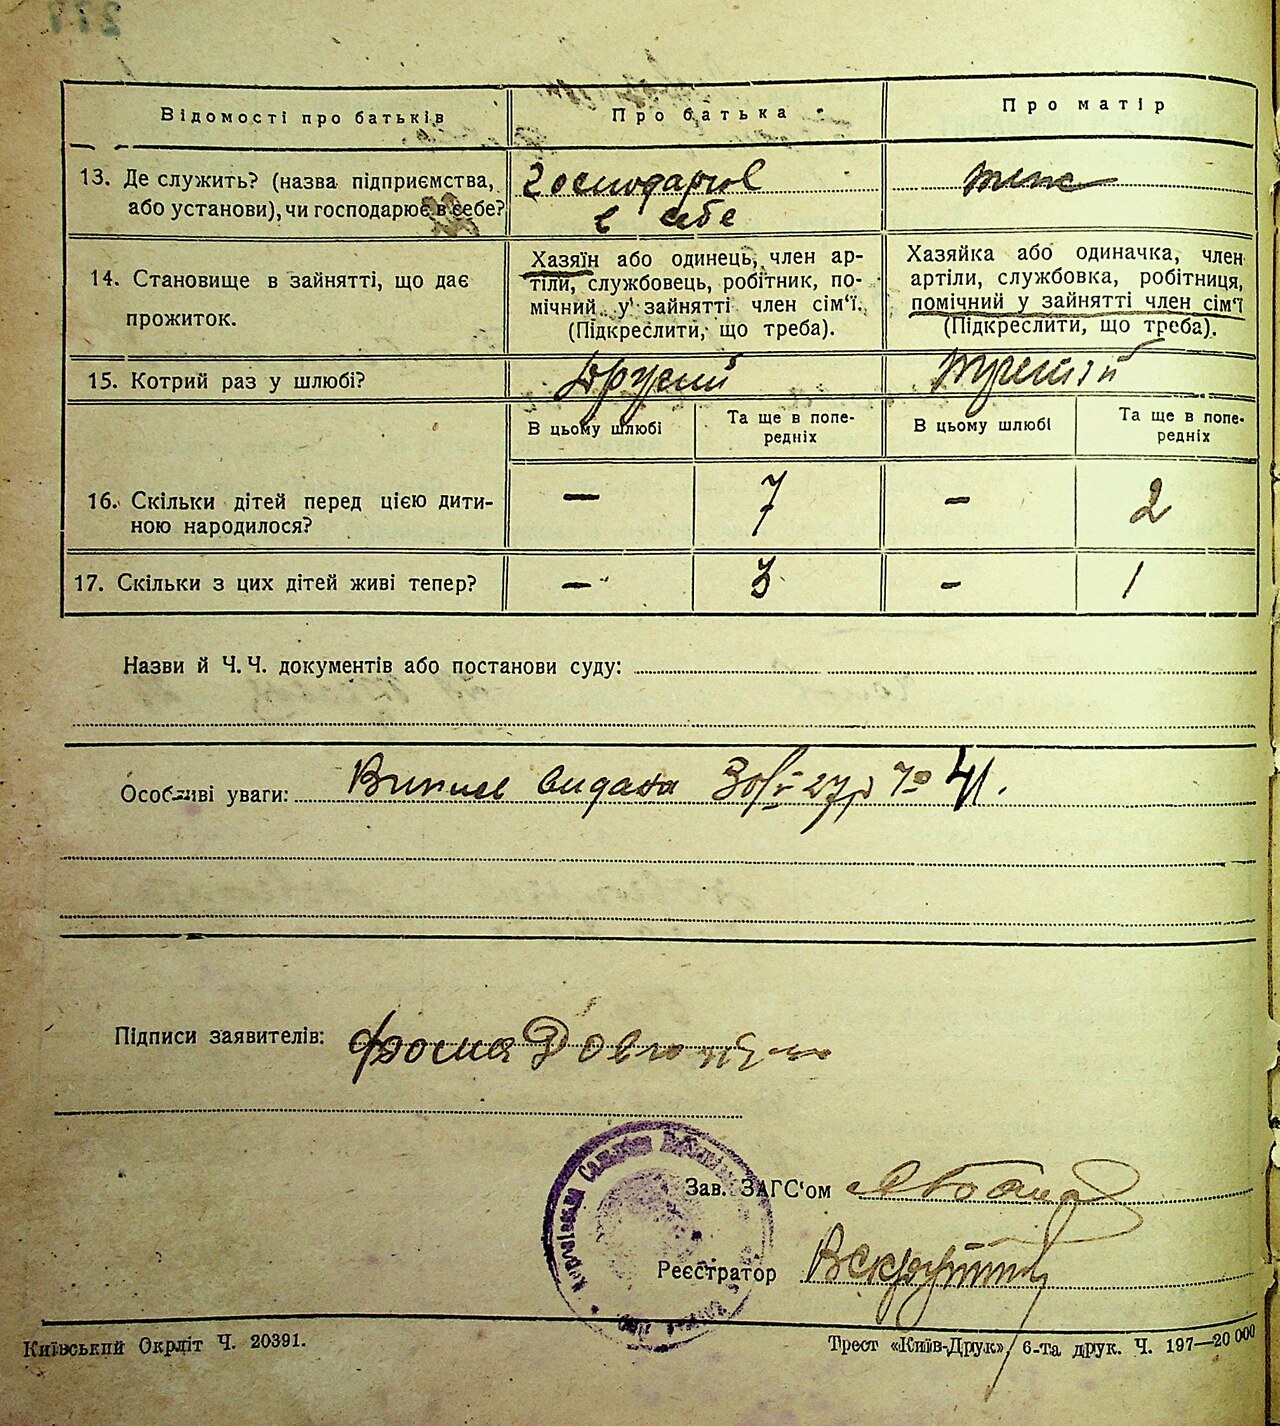 Відомості про батьків
Про батька
Про матір
13. Де служить? (назва підприємства,
або установи), чи господарює в себе?
Господарює
в себе
теж
14. Становище в зайнятті, що дає
прожиток.
Хазяїн або одинець, член ар-
тіли, службовець, робітник, по-
мічний у зайнятті член сім‘ї.
(Підкреслити, що треба).
Хазяйка або одиначка, член
артіли, службовка, робітниця,
помічний у зайнятті член сім‘ї
(Підкреслити, що треба).
15. Котрий раз у шлюбі?
Другий
третій
В цьому шлюбі
Та ще в попе-
редніх
В цьому шлюбі
Та ще в попе-
редніх
16. Скільки дітей перед цією дити-
ною народилося?
— 7 - 2
17. Скільки з цих дітей живі тепер?
— 3 - 1
Назви й Ч. Ч. документів або постанови суду:
Особливі уваги: Випись видана 41.
Підписи заявителів: Фома
Зав. ЗАГС‘ом
Реєстратор
Київський Окрліт Ч. 20391.
Трест «Київ-Друк», 6-та друк. Ч. 197—20 000